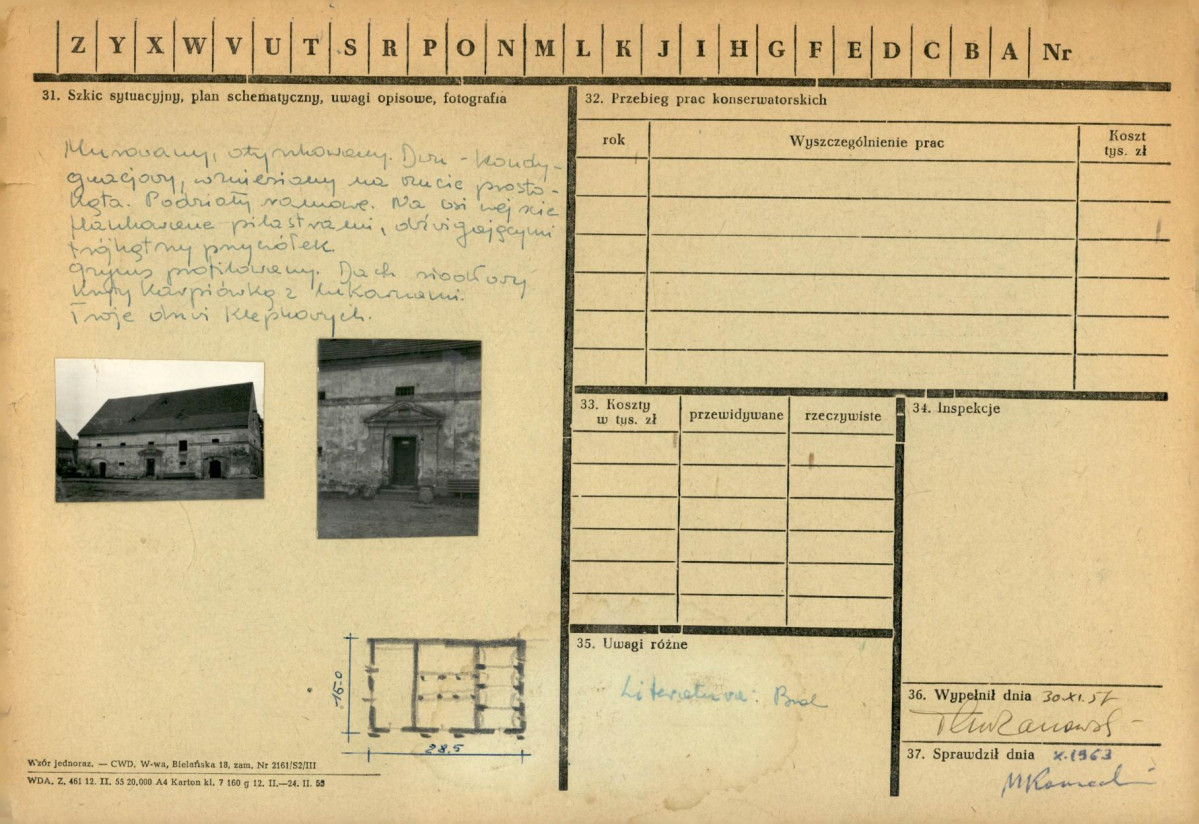 Z Y X W V U T S R P O N M L K J I H G F E D C B A Nr
31. Szkic sytuacyjny, plan schematyczny, uwagi opisowe, fotografia
Murowany, otynkowany. Dwu-kondy-
gnacjowy, wzniesiony na rzucie prosto-
kąta. Podziały ramowe. Na osi wejście
flankowane pilastrami, dźwigającymi
trójkątny przyczółek.
Gzyms profilowany. Dach siodłowy
kryty karpiówką z lukarnami.
Troje drzwi klepkowych.
16.0
28.5
Wzór jednoraz. — CWD, W-wa, Bielańska 18, zam. Nr 2161/S2/III
WDA, Z. 461 12. II. 55 20.000 A4 Karton kl. 7 160 g 12. II.—24. II. 55
32. Przebieg prac konserwatorskich
rok Wyszczególnienie prac Koszt tys. zł
33. Koszty w tys. zł przewidywane rzeczywiste
34. Inspekcje
35. Uwagi różne
Literatura: Brak
36. Wypełnił dnia 30.XI.57
37. Sprawdził dnia X.1963